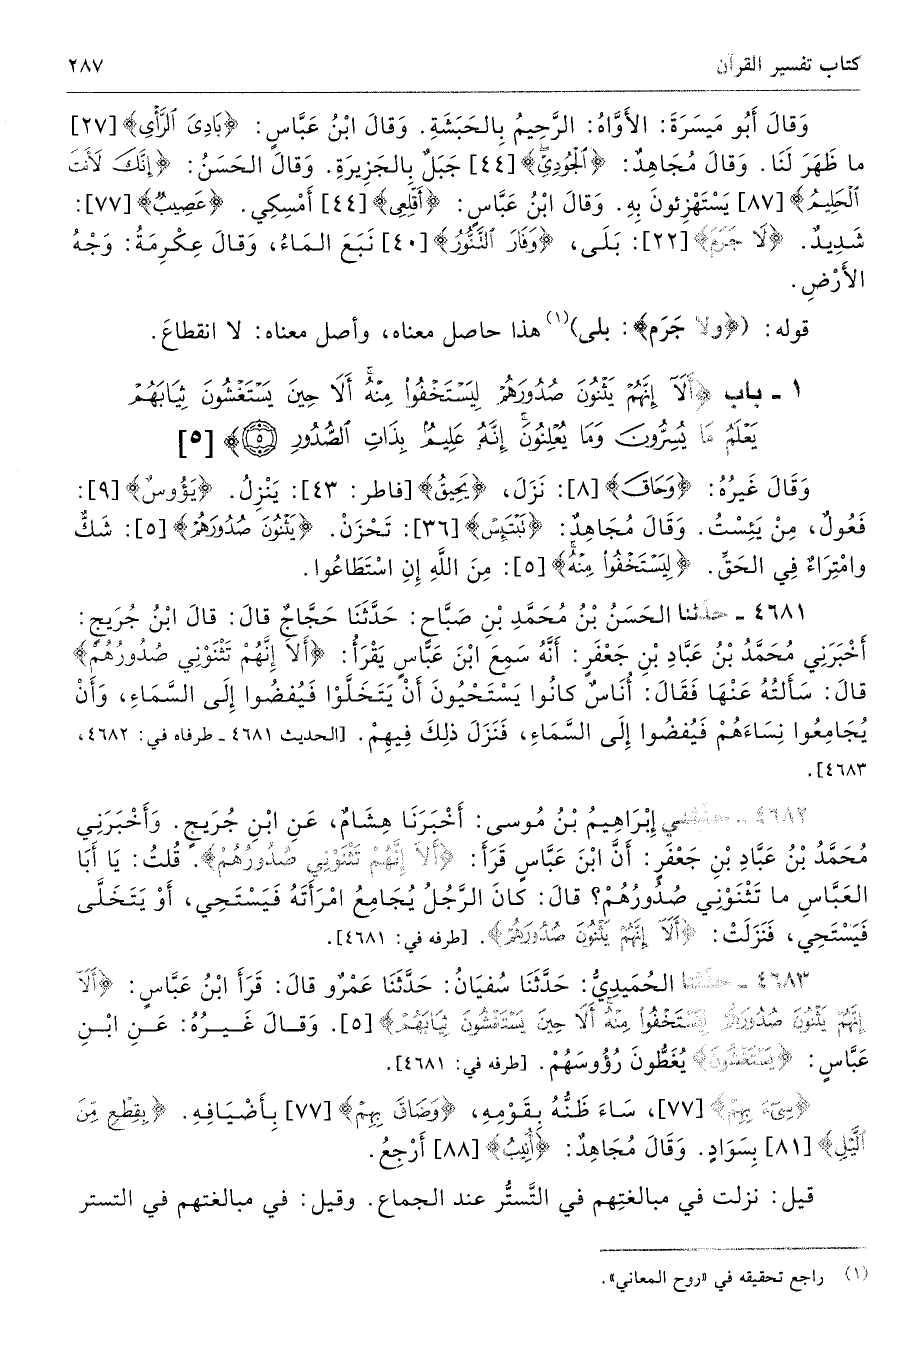 كتاب تفسير القرآن ٢٨٧
وَقَالَ أَبُو مَيسَرَةَ: الأَوَّاهُ: الرَّحِيمُ بِالحَبَشَةِ. وَقَالَ ابْنُ عَبَّاسٍ: ﴿بَادِىَ ٱلرَّأْىِ﴾ [٢٧]
ما ظَهَرَ لَنَا. وَقَالَ مُجَاهِدٌ: ﴿ٱلْجُودِىِّ﴾ [٤٤] جَبَلٌ بِالجَزِيرَةِ. وَقَالَ الحَسَنُ: ﴿إِنَّكَ لَأَنتَ
ٱلْحَلِيمُ﴾ [٨٧] يَسْتَهْزِئونَ بِهِ. وَقَالَ ابْنُ عَبَّاسٍ: ﴿أَقْلِعِى﴾ [٤٤] أَمْسِكِي. ﴿عَصِيبٌ﴾ [٧٧]:
شَدِيدٌ. ﴿لَا جَرَمَ﴾ [٢٢]: بَلَى، ﴿وَفَارَ ٱلتَّنُّورُ﴾ [٤٠] نَبَعَ المَاءُ، وَقَالَ عِكْرِمَةُ: وَجْهُ
الأَرْضِ.
قوله: (﴿ولا جَرَم﴾: بلى)(١) هذا حاصل معناه، وأصل معناه: لا انقطاعَ.
١ - باب ﴿أَلَآ إِنَّهُمْ يَثْنُونَ صُدُورَهُمْ لِيَسْتَخْفُوا۟ مِنْهُ أَلَا حِينَ يَسْتَغْشُونَ ثِيَابَهُمْ
يَعْلَمُ مَا يُسِرُّونَ وَمَا يُعْلِنُونَ إِنَّهُۥ عَلِيمٌۢ بِذَاتِ ٱلصُّدُورِ ۝٥﴾ [٥]
وَقَالَ غَيرُهُ: ﴿وَحَاقَ﴾ [٨]: نَزَلَ، ﴿يَحِيقُ﴾ [فاطر: ٤٣]: يَنْزِلُ. ﴿يَؤُوسٌ﴾ [٩]:
فَعُولٌ، مِنْ يَئِسْتُ. وَقَالَ مُجَاهِدٌ: ﴿تَبْتَئِسْ﴾ [٣٦]: تَحْزَنْ. ﴿يَثْنُونَ صُدُورَهُمْ﴾ [٥]: شَكٌّ
وامْتِرَاءٌ فِي الحَقِّ. ﴿لِيَسْتَخْفُوا۟ مِنْهُ﴾ [٥]: مِنَ اللَّهِ إِنِ اسْتَطَاعُوا.
٤٦٨١ - حدّثنا الحَسَنُ بْنُ مُحَمَّدِ بْنِ صَبَّاحٍ: حَدَّثَنَا حَجَّاجٌ قالَ: قالَ ابْنُ جُرَيجٍ:
أَخْبَرَنِي مُحَمَّدُ بْنُ عَبَّادِ بْنِ جَعْفَرٍ: أَنَّهُ سَمِعَ ابْنَ عَبَّاسٍ يَقْرَأُ: ﴿أَلاَ إِنَّهُمْ تَثْنَوْنِي صُدُورُهُمْ﴾
قالَ: سَأَلتُهُ عَنْهَا فَقَالَ: أُنَاسٌ كانُوا يَسْتَحْيُونَ أَنْ يَتَخَلَّوْا فَيُفضُوا إِلَى السَّمَاءِ، وَأَنْ
يُجَامِعُوا نِسَاءَهُمْ فَيُفضُوا إِلَى السَّمَاءِ، فَنَزَلَ ذلِكَ فِيهِمْ. [الحديث ٤٦٨١ - طرفاه في: ٤٦٨٢،
٤٦٨٣].
٤٦٨٢ - حدّثني إِبْرَاهِيمُ بْنُ مُوسى: أَخْبَرَنَا هِشَامٌ، عَنِ ابْنِ جُرَيجٍ. وَأَخْبَرَنِي
مُحَمَّدُ بْنُ عَبَّادِ بْنِ جَعْفَرٍ: أَنَّ ابْنَ عَبَّاسٍ قَرَأَ: ﴿أَلاَ إِنَّهُمْ تَثْنَوْنِي صُدُورُهُمْ﴾. قُلتُ: يَا أَبَا
العَبَّاسِ ما تَثْنَوْنِي صُدُورُهُمْ؟ قالَ: كانَ الرَّجُلُ يُجَامِعُ امْرَأَتَهُ فَيَسْتَحِي، أَوْ يَتَخَلَّى
فَيَسْتَحِي، فَنَزَلَتْ: ﴿أَلَآ إِنَّهُمْ يَثْنُونَ صُدُورَهُمْ﴾. [طرفه في: ٤٦٨١].
٤٦٨٣ - حدّثنا الحُمَيدِيُّ: حَدَّثَنَا سُفيَانُ: حَدَّثَنَا عَمْرٌو قالَ: قَرَأَ ابْنُ عَبَّاسٍ: ﴿أَلَآ
إِنَّهُمْ يَثْنُونَ صُدُورَهُمْ لِيَسْتَخْفُوا۟ مِنْهُ أَلَا حِينَ يَسْتَغْشُونَ ثِيَابَهُمْ﴾ [٥]. وَقَالَ غَيرُهُ: عَنِ ابْنِ
عَبَّاسٍ: ﴿يَسْتَغْشُونَ﴾ يُغَطُّونَ رُؤُوسَهُمْ. [طرفه في: ٤٦٨١].
﴿سِىٓءَ بِهِمْ﴾ [٧٧]، سَاءَ ظَنُّهُ بِقَوْمِهِ، ﴿وَضَاقَ بِهِمْ﴾ [٧٧] بِأَضْيَافِهِ. ﴿بِقِطْعٍ مِّنَ
ٱلَّيْلِ﴾ [٨١] بِسَوَادٍ. وَقَالَ مُجَاهِدٌ: ﴿أُنِيبُ﴾ [٨٨] أَرْجِعُ.
قيل: نزلت في مبالغتِهم في التَّستُّر عند الجماع. وقيل: في مبالغتهم في التستر
(١) راجع تحقيقه في «روح المعاني».